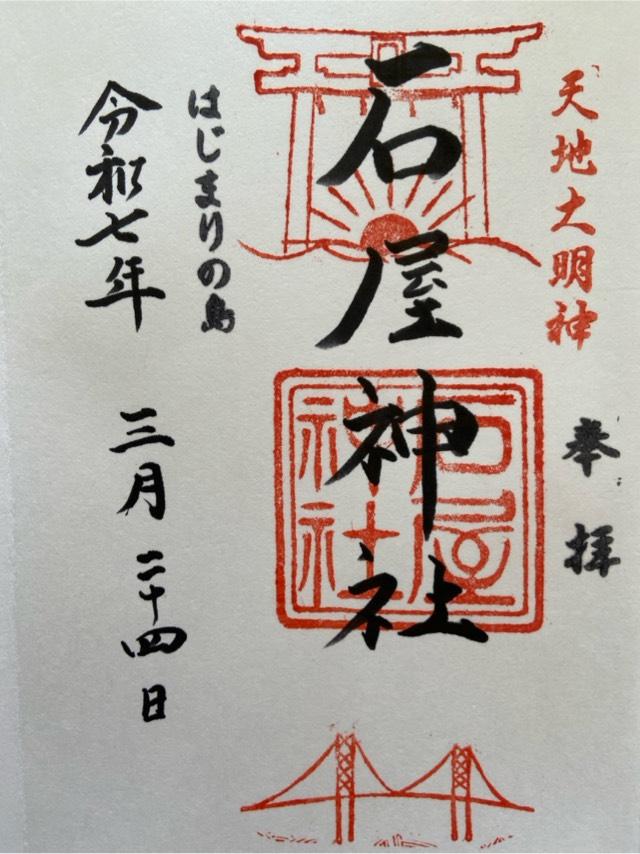 天地大明神
奉拝
石屋神社
石屋神社
はじまりの島
令和七年 三月 二十四日